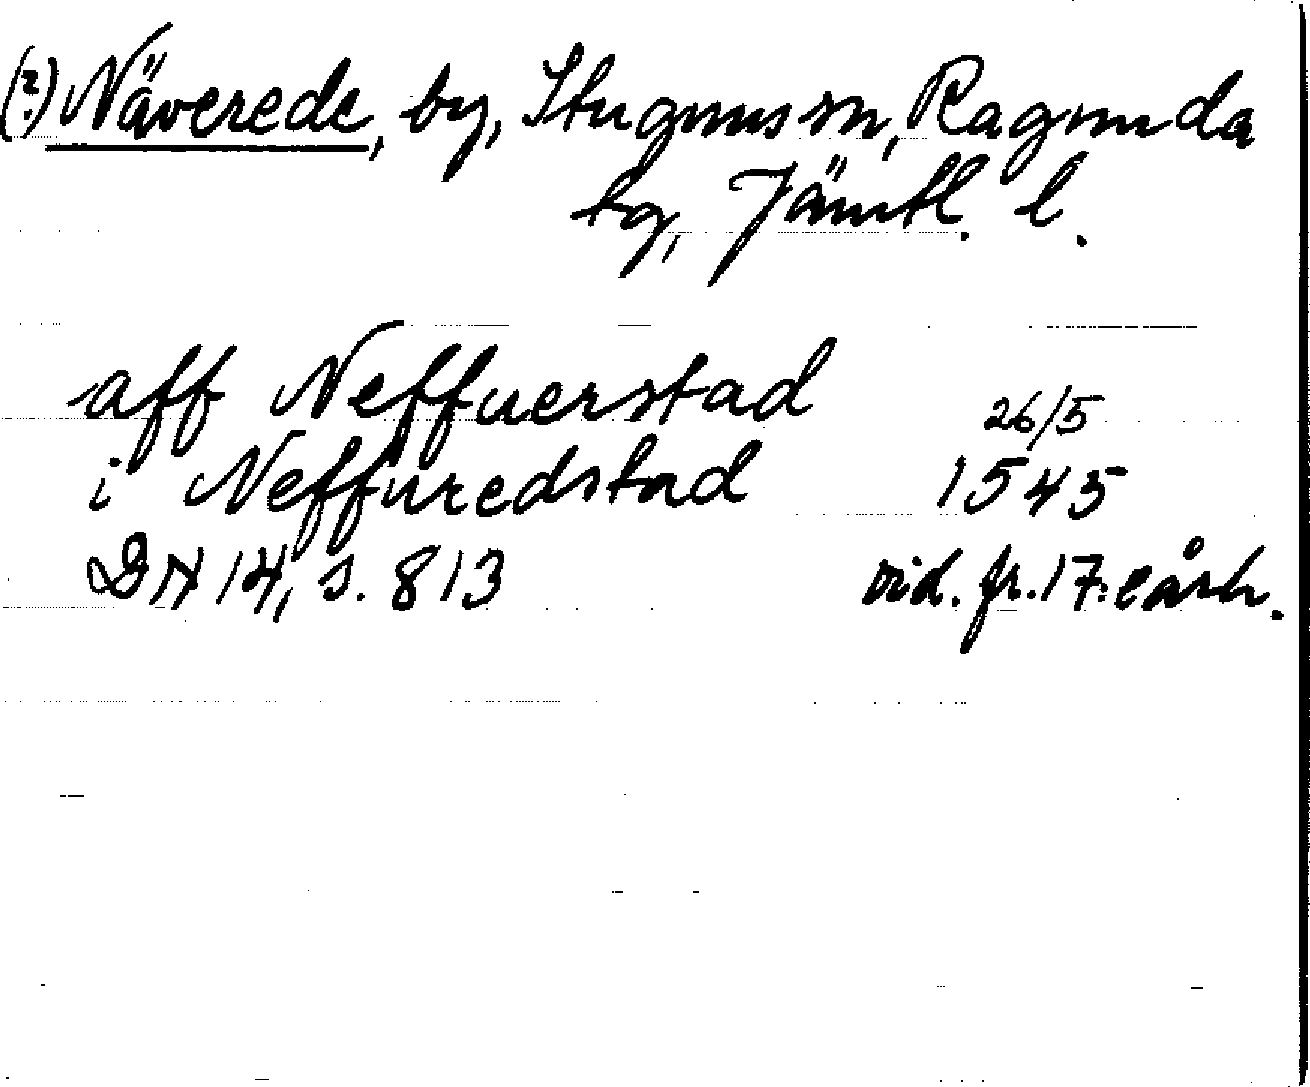 (?) Näverede, by, Stuguns sn, Ragunda
tg, Jämtl. l.
aff Neffuerstad 26/5
i Neffuredstad 1545
DN 14, s. 813 vid. fr. 17:e årh.